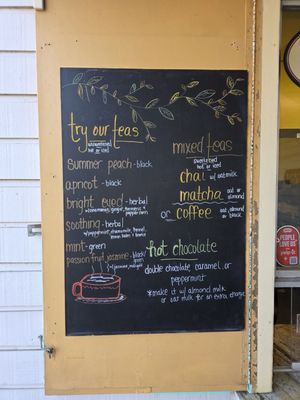 try our teas
unsweetened
hot or iced
Summer peach - black
apricot - black
bright eyed - herbal
w/ lemongrass, ginger, turmeric &
peppercorn
soothing - herbal
w/ peppermint, chamomile, fennel,
mint - green
passion fruit jasmine - black/
green
mixed teas
sweetened
hot or iced
chai w/ oatmilk
matcha oat or
almond
or coffee oat, almond
or black
hot chocolate
double chocolate, caramel, or
peppermint
*make it w/ almond milk
or oat milk for an extra charge
PEOPLE
LOVE US